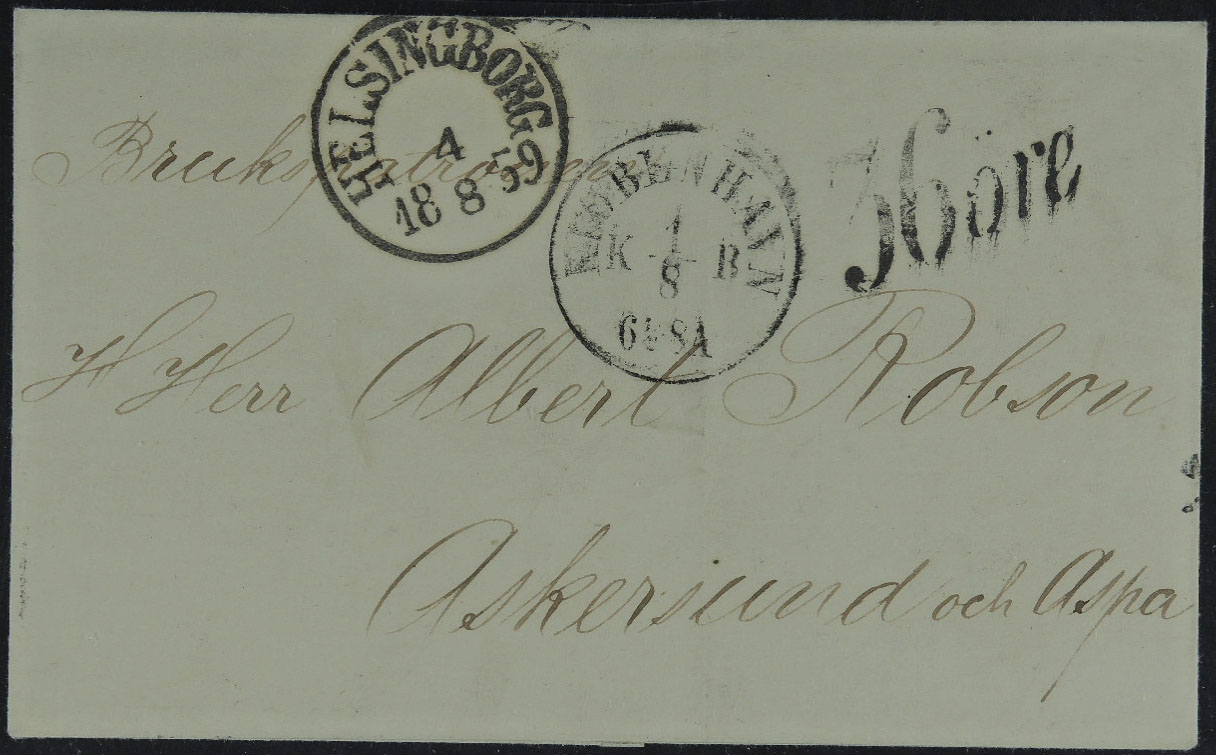 HELSINGBORG
4
18 8 59
KIØBENHAVN
K 1 B
8
36 öre
Brukspatronen
H Herr Albert Robson
Askersund och Aspa